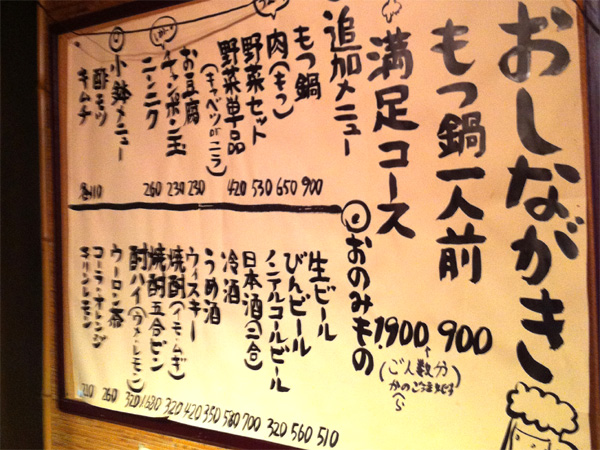 おしながき
もつ鍋一人前 900
満足コース 1,900
(ご人数分
かのごきです
追加メニュー
もつ鍋 900
肉(もつ) 650
野菜セット 530
野菜単品 420
(キャベツorニラ)
お豆腐 230
チャンポン玉 230
ニンニク 260
小鉢メニュー
酢モツ
キムチ 各110
おのみもの
生ビール 510
びんビール 560
ノンアルコールビール 320
日本酒(二合) 700
冷酒 580
うめ酒 350
ウィスキー 420
焼酎(イモ・ムギ) 320
焼酎五合ビン 1,680
酎ハイ(ウメ・レモン) 320
ウーロン茶 260
コーラ・オレンジ
キリンレモン 210